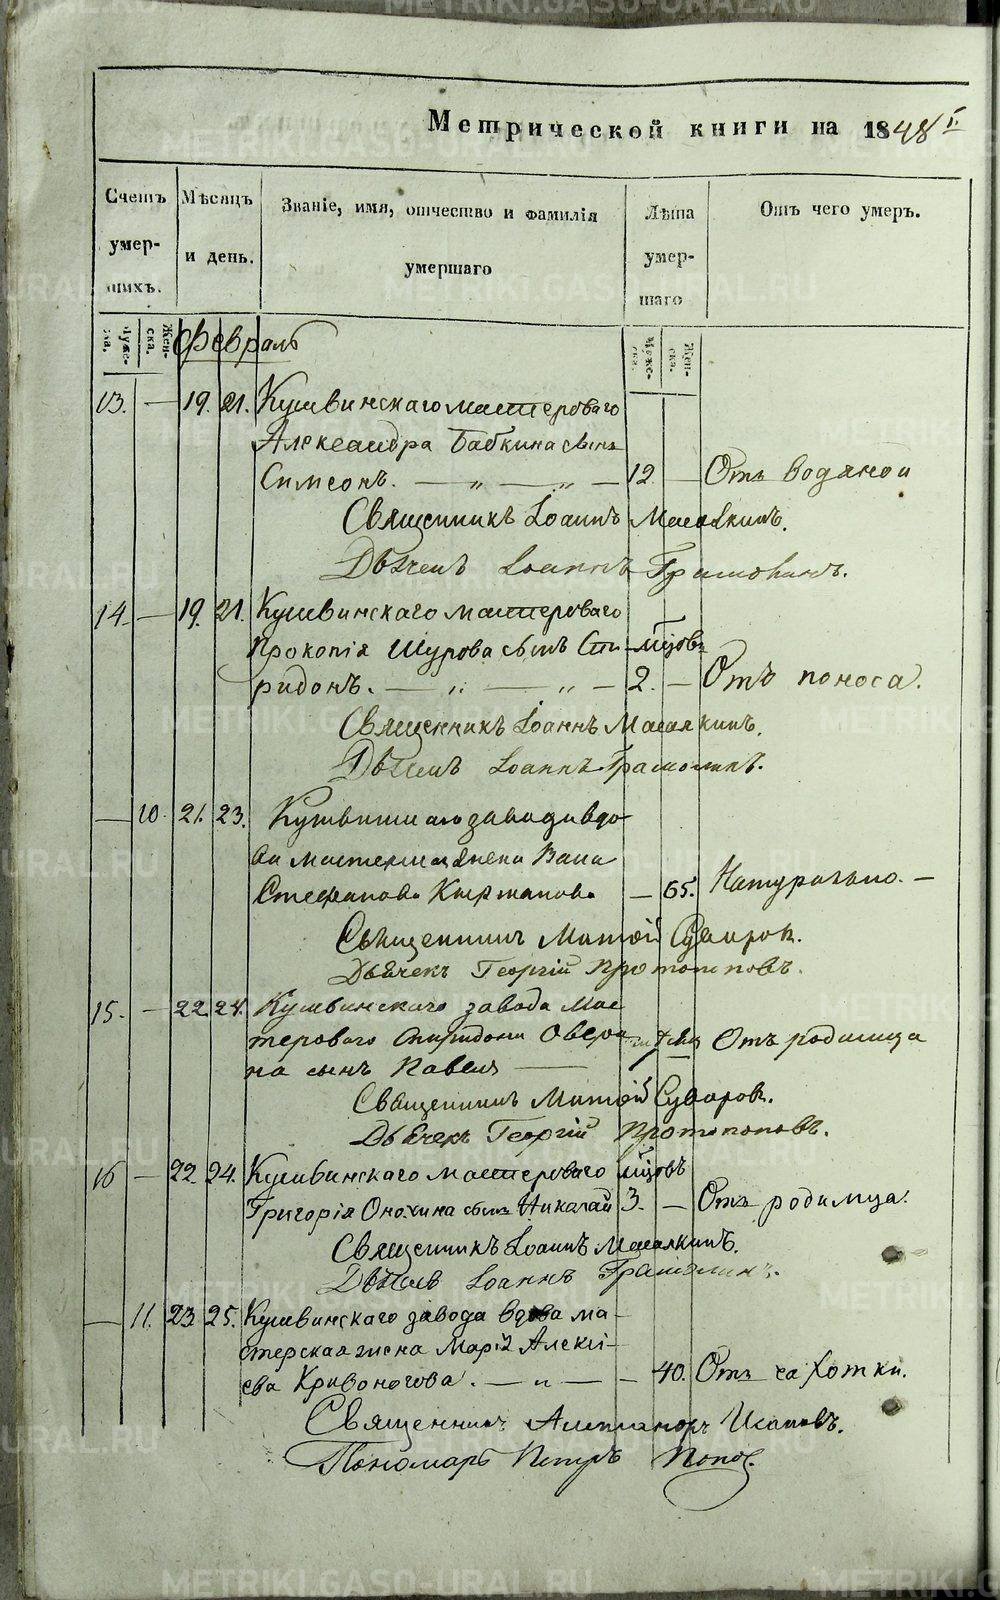 Метрической книги на 1848 г.
Счетъ умершихъ.
Мѣсяцъ и день.
Званіе, имя, отчество и фамилія умершаго
Лѣта умершаго
Отъ чего умеръ.
Мужеска. Женска. Февраль Мужеска. Женска.
13. — 19. 21. Кушвинскаго мастероваго
Александра Бабкина сынъ
Симеонъ. — „ — „ — 12 — Отъ водяной
Священникъ Іоаннъ
Дьячекъ Іоаннъ
14. — 19. 21. Кушвинскаго мастероваго
Прокопія Шурова сынъ Спи- мѣсцовъ
ридонъ. — „ — „ — 2. — Отъ поноса.
Священникъ Іоаннъ
Дьячекъ Іоаннъ
— 10. 21. 23. Кушвинскаго завода вдо-
ва мастерская жена
Стефанова — 65. Натурально. —
Священникъ Суворов.
Дьячекъ Георгій Протопоповъ.
15. — 22. 24. Кушвинскаго завода мас-
терового Спиридона Отъ родимца
на сынъ Павелъ —
Священникъ Суворов.
Дьячекъ Георгій Протопоповъ.
16 — 22. 24. Кушвинскаго мастероваго мѣсцовъ
Григорія Онохина сынъ Николай 3. — Отъ родимца.
Священникъ Іоаннъ
Дьячекъ Іоаннъ
— 11. 23. 25. Кушвинскаго завода вдова ма-
стерская жена Марія Алексі-
ева Кривоногова. — „ — — 40. Отъ чахотки.
Священникъ
Пономарь Петръ Попов.
METRIKI.GASO-URAL.RU